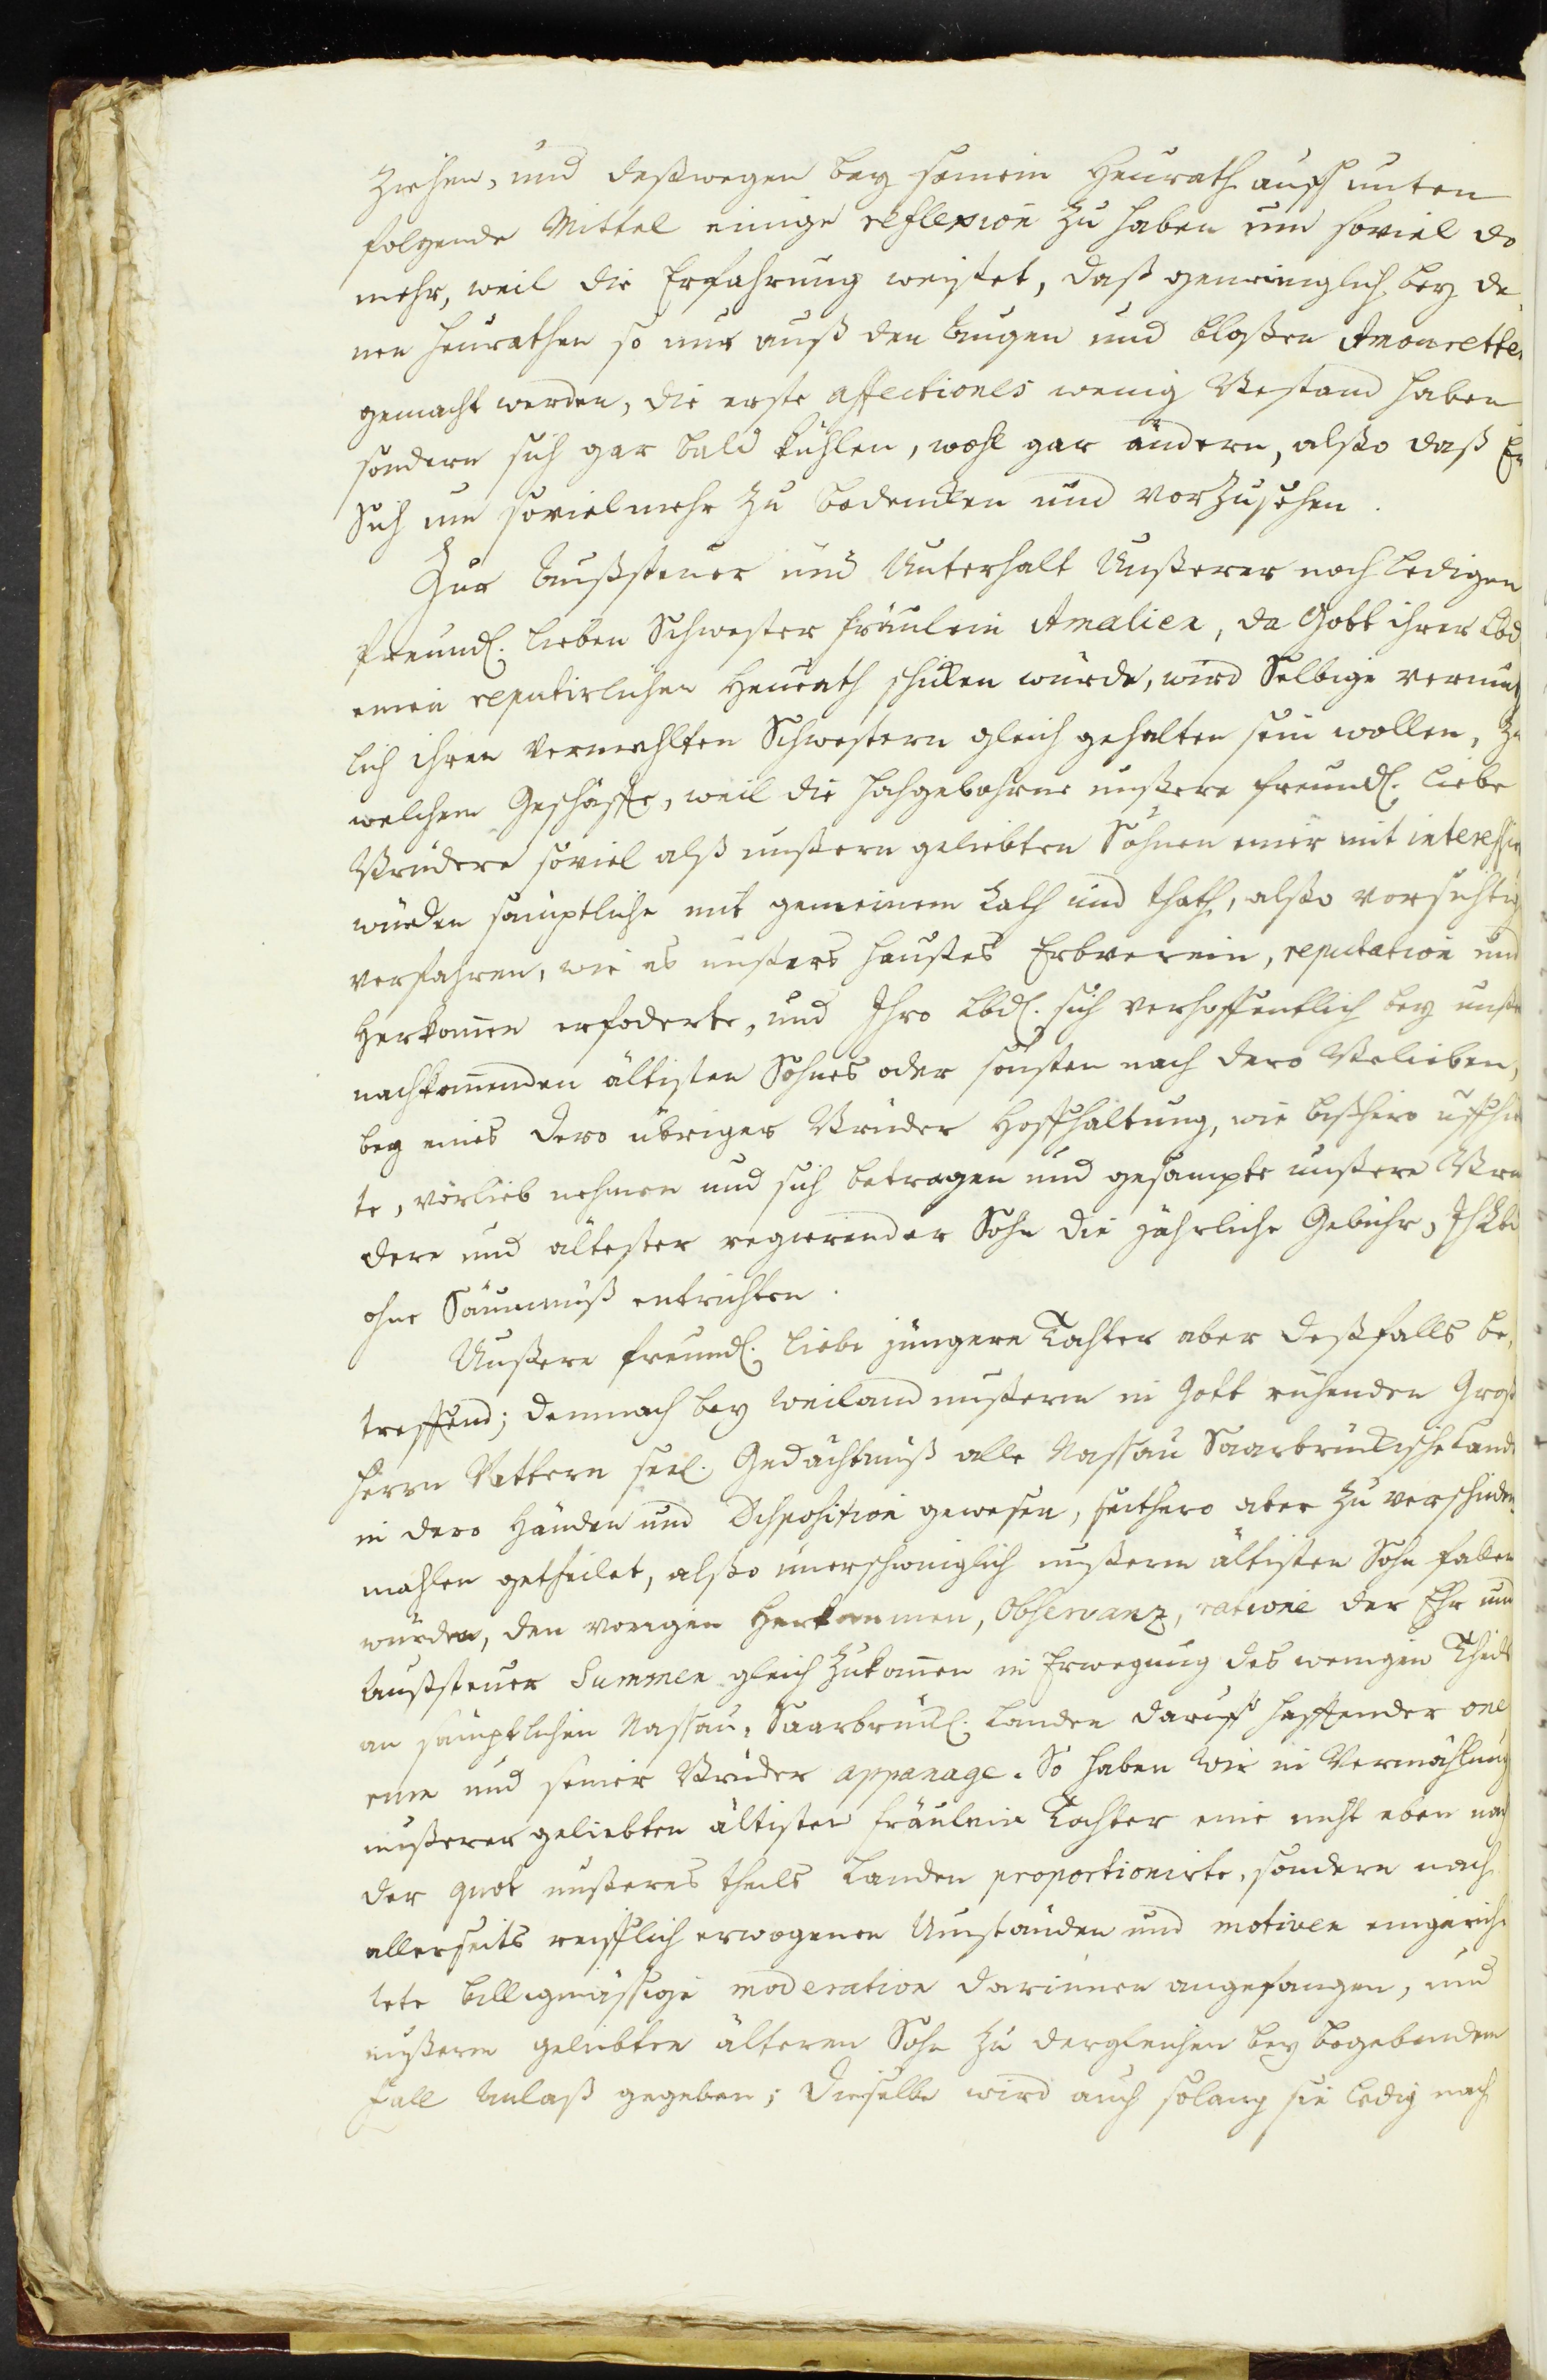 Ziehen, und deßwegen bey seinem Heurath auff unten
folgende Mittel einige reflexion zu haben um soviel do
mehr, weil die Erfahrung weistet, daß gemeiniglich bey de¬
nen Heurathen so nur auß den Augen und bloßen Amouretten
gemacht werden, die erste affectiones wenig Bestand haben
sondern sich gar bald kühlen, wohl gar ändern, alßo daß Er
Sich um sovielmehr zu bedencken und vorzusehen.
Zur Außsteuer und Unterhalt Unßerer noch ledigen
freundl. lieben Schwester Fräulein Amalien, da Gott ihrer Lbd
einen reputirlichen Heurath schicken würde, wird Selbige vermut
lich ihren vermählten Schwestern gleich gehalten sein wollen, Zu
welchem Geschäffte, weil die hochgebohrne unßere freundl. liebe
Brüdere soviel alß unßern geliebten Söhnen mit interessir
würden sämptliche mit gemeinem Rath und that, alßo vorsichtig
verfahren, wie es unßers Haußes Erbverein, reputation und
Herkom̄en erfoderte, und Ihro Lbdl. sich verhoffentlich bey unßer
nachkom̄enden ältisten Sohnes oder sonsten nach dero Belieben,
bey eines dero übriger Brüder Hoffhaltung, wie bißhero
te, vorlieb nehmen und sich betragen und gesampte unßere Brü
dere und ältester regierender Sohn die jährliche Gebühr, Ih Lbd
ohne Säumnüß entrichten.
Unßere freundl. liebe jüngere Tochter aber deßfalls be¬
treffend; demnach bey weiland unßerm in Gott ruhenden Groß
Herrn Vattern seel. Gedächtnuß alle Nassau Saarbrückische Lande
in dero Händen und Disposition gewesen, seithero aber zu verschieden
mahlen getheilet, alßo unerschwinglich unßerm ältisten Sohn fallen
würden, den vorigen Herkommen, Observanz, ratione der Ehr und
Außsteuer Summen gleich zukom̄en in Erwegung des wenigen Theils
an sämptlichen Nassau, Saarbrückl. Landen daruff hafftender one
rum und seiner Brüder appanage. So haben wir in Vermählung
unßerer geliebten ältisten Fräulein Tochter eine nicht eben nach
der quot unßeres theils Landen proportionirte, sondern nach
allerseits reifflich erwogenen Umständen und motiven eingerich¬
tete billigmässige moderation darinnen angefangen, und
unßerm geliebten älteren Sohn zu dergleichen bey begebendem
Fall Anlaß gegeben; Dieselbe wird auch solang sie ledig nach